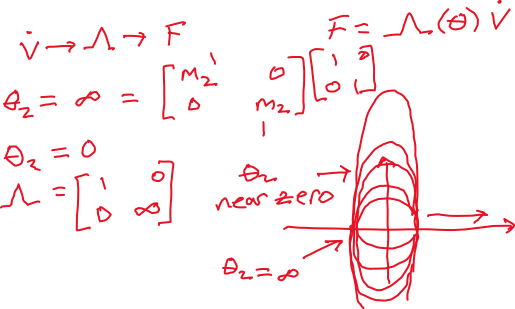 V̇ → Λ → F
F = Λ(θ) V̇
θ₂ = ∞ = [ m₂ 0 ; 0 m₂ ] [ 1 0 ; 0 1 ]
1
1
θ₂ = 0
Λ = [ 1 0 ; 0 ∞ ]
θ₂ →
near zero
θ₂ = ∞